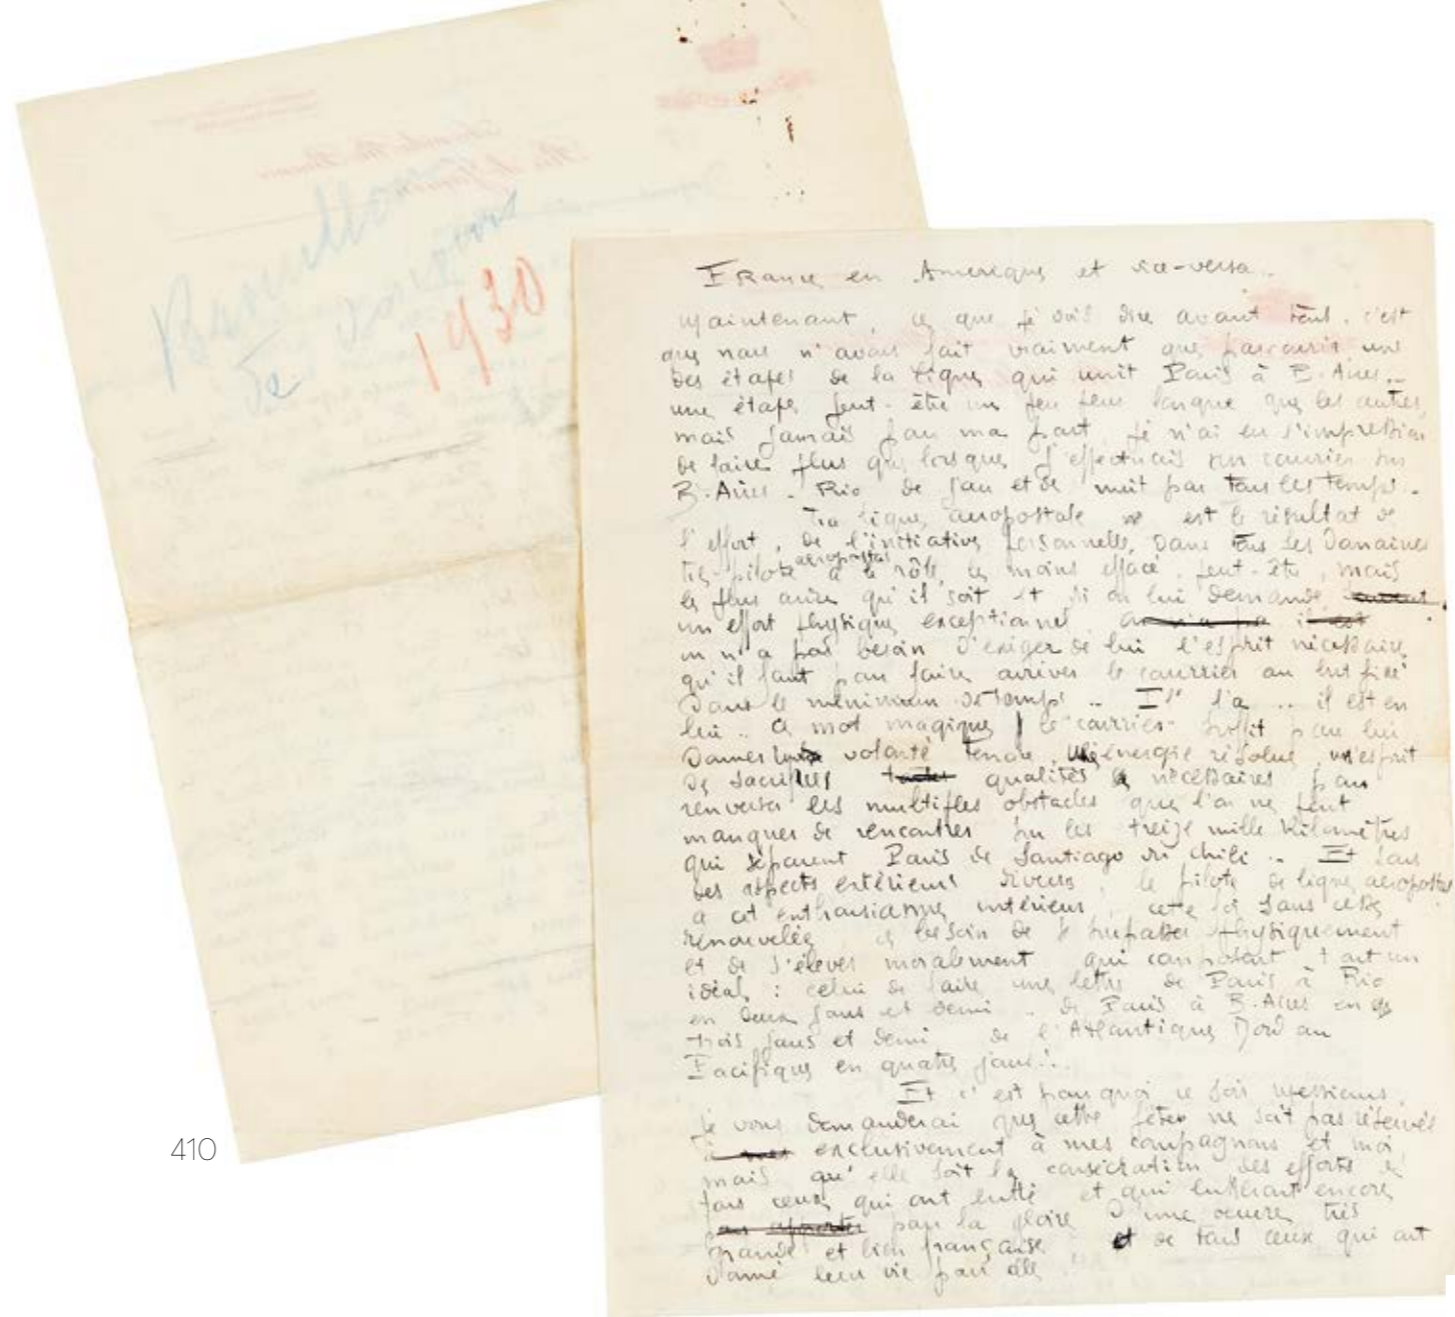 Brouillon
de
1930
410
France en Amérique et vice-versa..
Maintenant, ce que je dois dire avant tout, c'est
que nous n'avons fait vraiment que parcourir une
des étapes de la ligne qui unit Paris à B. Aires..
une étape peut-être un peu plus longue que les autres,
mais jamais pour ma part, je n'ai eu l'impression
de faire plus que lorsque j'effectuais un courrier sur
B. Aires - Rio de jour et de nuit par tous les temps..
La ligne aeropostale est le résultat de
l'effort, de l'initiative personnelle, dans tous les domaines
Le pilote aeropostal a le rôle le moins effacé peut-être, mais
le plus aride qu'il soit et si on lui demande
un effort physique exceptionnel
on n'a pas besoin d'exiger de lui l'esprit nécessaire
qu'il faut pour faire arriver le courrier au but fixé
dans le minimum de temps .. Il l'a .. il est en
lui .. Ce mot magique le courrier suffit pour lui
donner volonté tenace, une énergie résolue, un esprit
de sacrifices qualités nécessaires pour
renverser les multiples obstacles que l'on ne peut
manquer de rencontrer sur les treize mille Kilomètres
qui séparent Paris de Santiago du Chili .. Et sous
des aspects extérieurs divers, le pilote de ligne aeropostale
a cet enthousiasme intérieur, cette foi sans cesse
renouvelée ce besoin de se surpasser physiquement
et de s'élever moralement qui composent tout un
idéal : celui de faire une lettre de Paris à Rio
en deux jours et demi .. de Paris à B. Aires en
trois jours et demi de l'Atlantique Nord au
Pacifique en quatre jours...
Et c'est pourquoi ce soir messieurs,
je vous demanderai que cette fête ne soit pas réservée
exclusivement à mes compagnons et moi
mais qu'elle soit la consécration des efforts de
tous ceux qui ont lutté et qui lutteront encore
pour la gloire d'une oeuvre très
grande et bien française et de tous ceux qui ont
donné leur vie pour elle